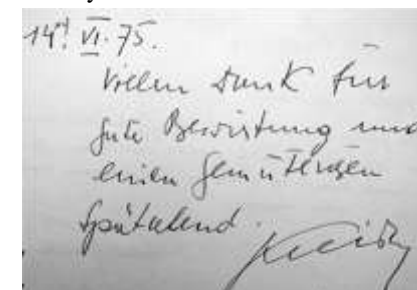 14. VI. 75.
Vielen Dank für
gute Bewirtung und
einen gemütlichen
Spätabend.